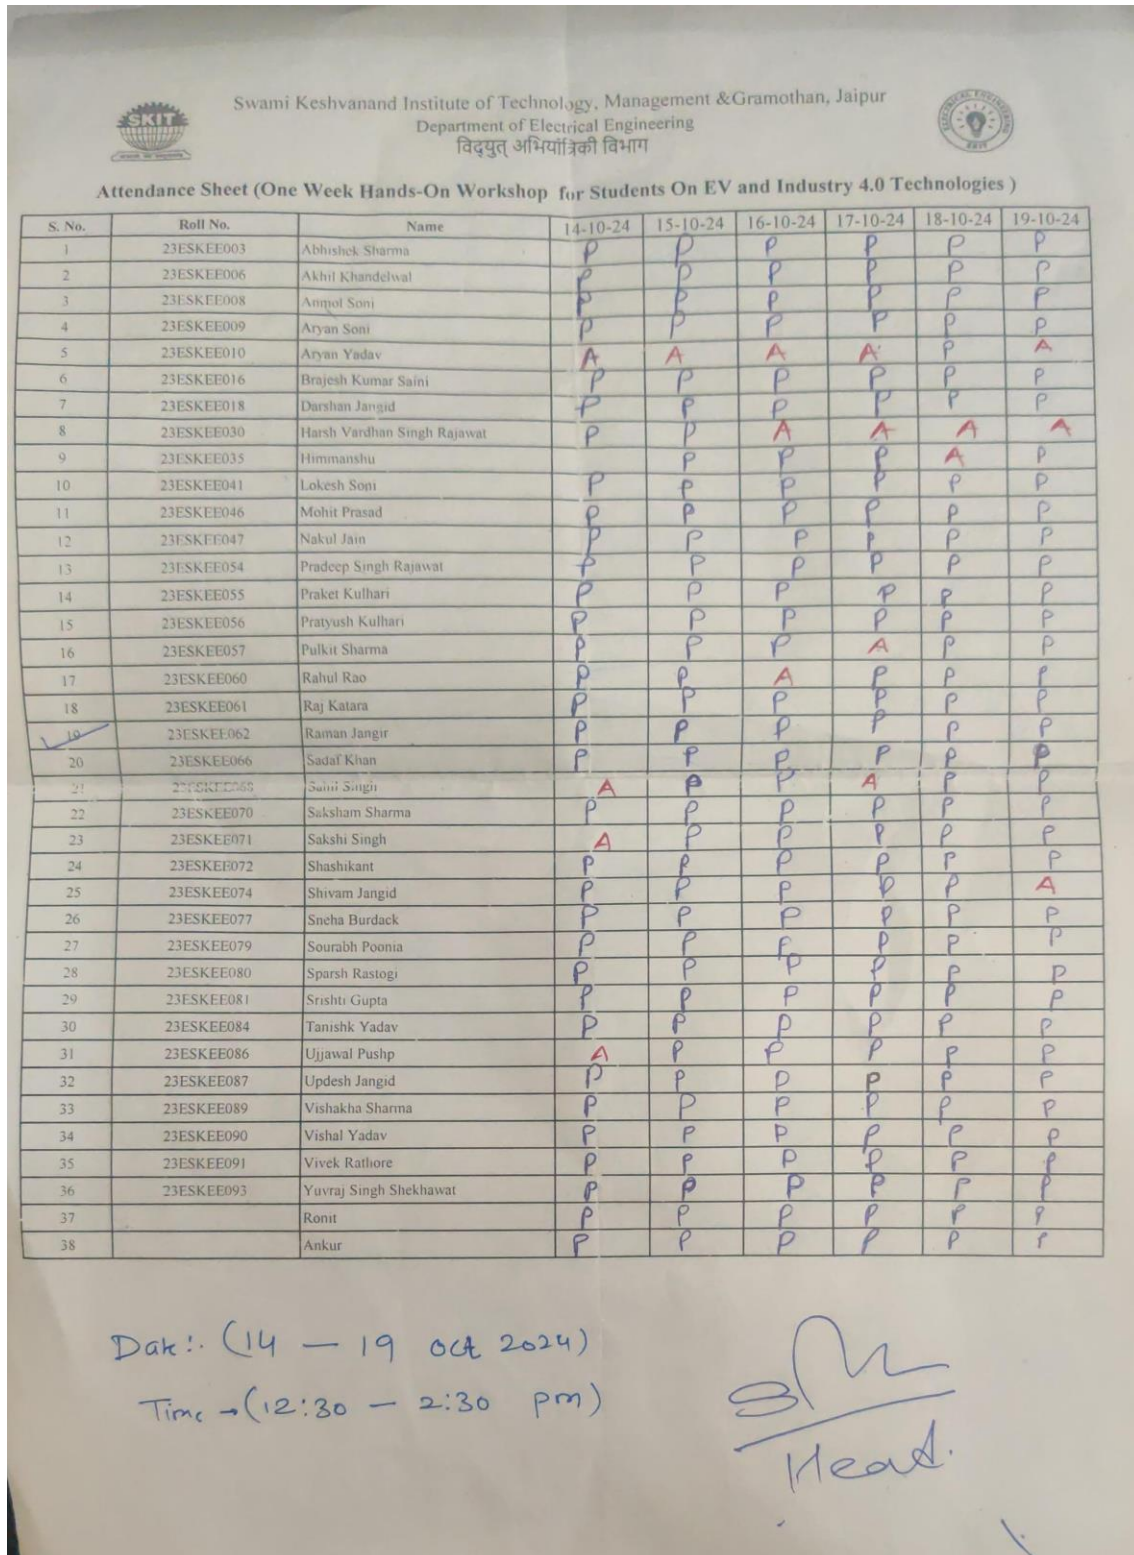 SKIT
ELECTRICAL ENGINEERING
Swami Keshvanand Institute of Technology, Management &Gramothan, Jaipur
Department of Electrical Engineering
विद्युत् अभियांत्रिकी विभाग
Attendance Sheet (One Week Hands-On Workshop for Students On EV and Industry 4.0 Technologies )
S. No. Roll No. Name 14-10-24 15-10-24 16-10-24 17-10-24 18-10-24 19-10-24
1 23ESKEE003 Abhishek Sharma P P P P P P
2 23ESKEE006 Akhil Khandelwal P P P P P P
3 23ESKEE008 Anmol Soni P P P P P P
4 23ESKEE009 Aryan Soni P P P P P P
5 23ESKEE010 Aryan Yadav A A A A P A
6 23ESKEE016 Brajesh Kumar Saini P P P P P P
7 23ESKEE018 Darshan Jangid P P P P P P
8 23ESKEE030 Harsh Vardhan Singh Rajawat P P A A A A
9 23ESKEE035 Himmanshu P P P A P
10 23ESKEE041 Lokesh Soni P P P P P P
11 23ESKEE046 Mohit Prasad P P P P P P
12 23ESKEE047 Nakul Jain P P P P P P
13 23ESKEE054 Pradeep Singh Rajawat P P P P P P
14 23ESKEE055 Praket Kulhari P P P P P P
15 23ESKEE056 Pratyush Kulhari P P P P P P
16 23ESKEE057 Pulkit Sharma P P P A P P
17 23ESKEE060 Rahul Rao P P A P P P
18 23ESKEE061 Raj Katara P P P P P P
19 23ESKEE062 Raman Jangir P P P P P P
20 23ESKEE066 Sadaf Khan P P P P P P
21 Singh A P P A P P
22 23ESKEE070 Saksham Sharma P P P P P P
23 23ESKEE071 Sakshi Singh A P P P P P
24 23ESKEE072 Shashikant P P P P P P
25 23ESKEE074 Shivam Jangid P P P P P A
26 23ESKEE077 Sneha Burdack P P P P P P
27 23ESKEE079 Sourabh Poonia P P P P P P
28 23ESKEE080 Sparsh Rastogi P P P P P P
29 23ESKEE081 Srishti Gupta P P P P P P
30 23ESKEE084 Tanishk Yadav P P P P P P
31 23ESKEE086 Ujjawal Pushp A P P P P P
32 23ESKEE087 Updesh Jangid P P P P P P
33 23ESKEE089 Vishakha Sharma P P P P P P
34 23ESKEE090 Vishal Yadav P P P P P P
35 23ESKEE091 Vivek Rathore P P P P P P
36 23ESKEE093 Yuvraj Singh Shekhawat P P P P P P
37 Ronit P P P P P P
38 Ankur P P P P P P
Date:. (14 — 19 Oct 2024)
Time → (12:30 — 2:30 pm)
Head.